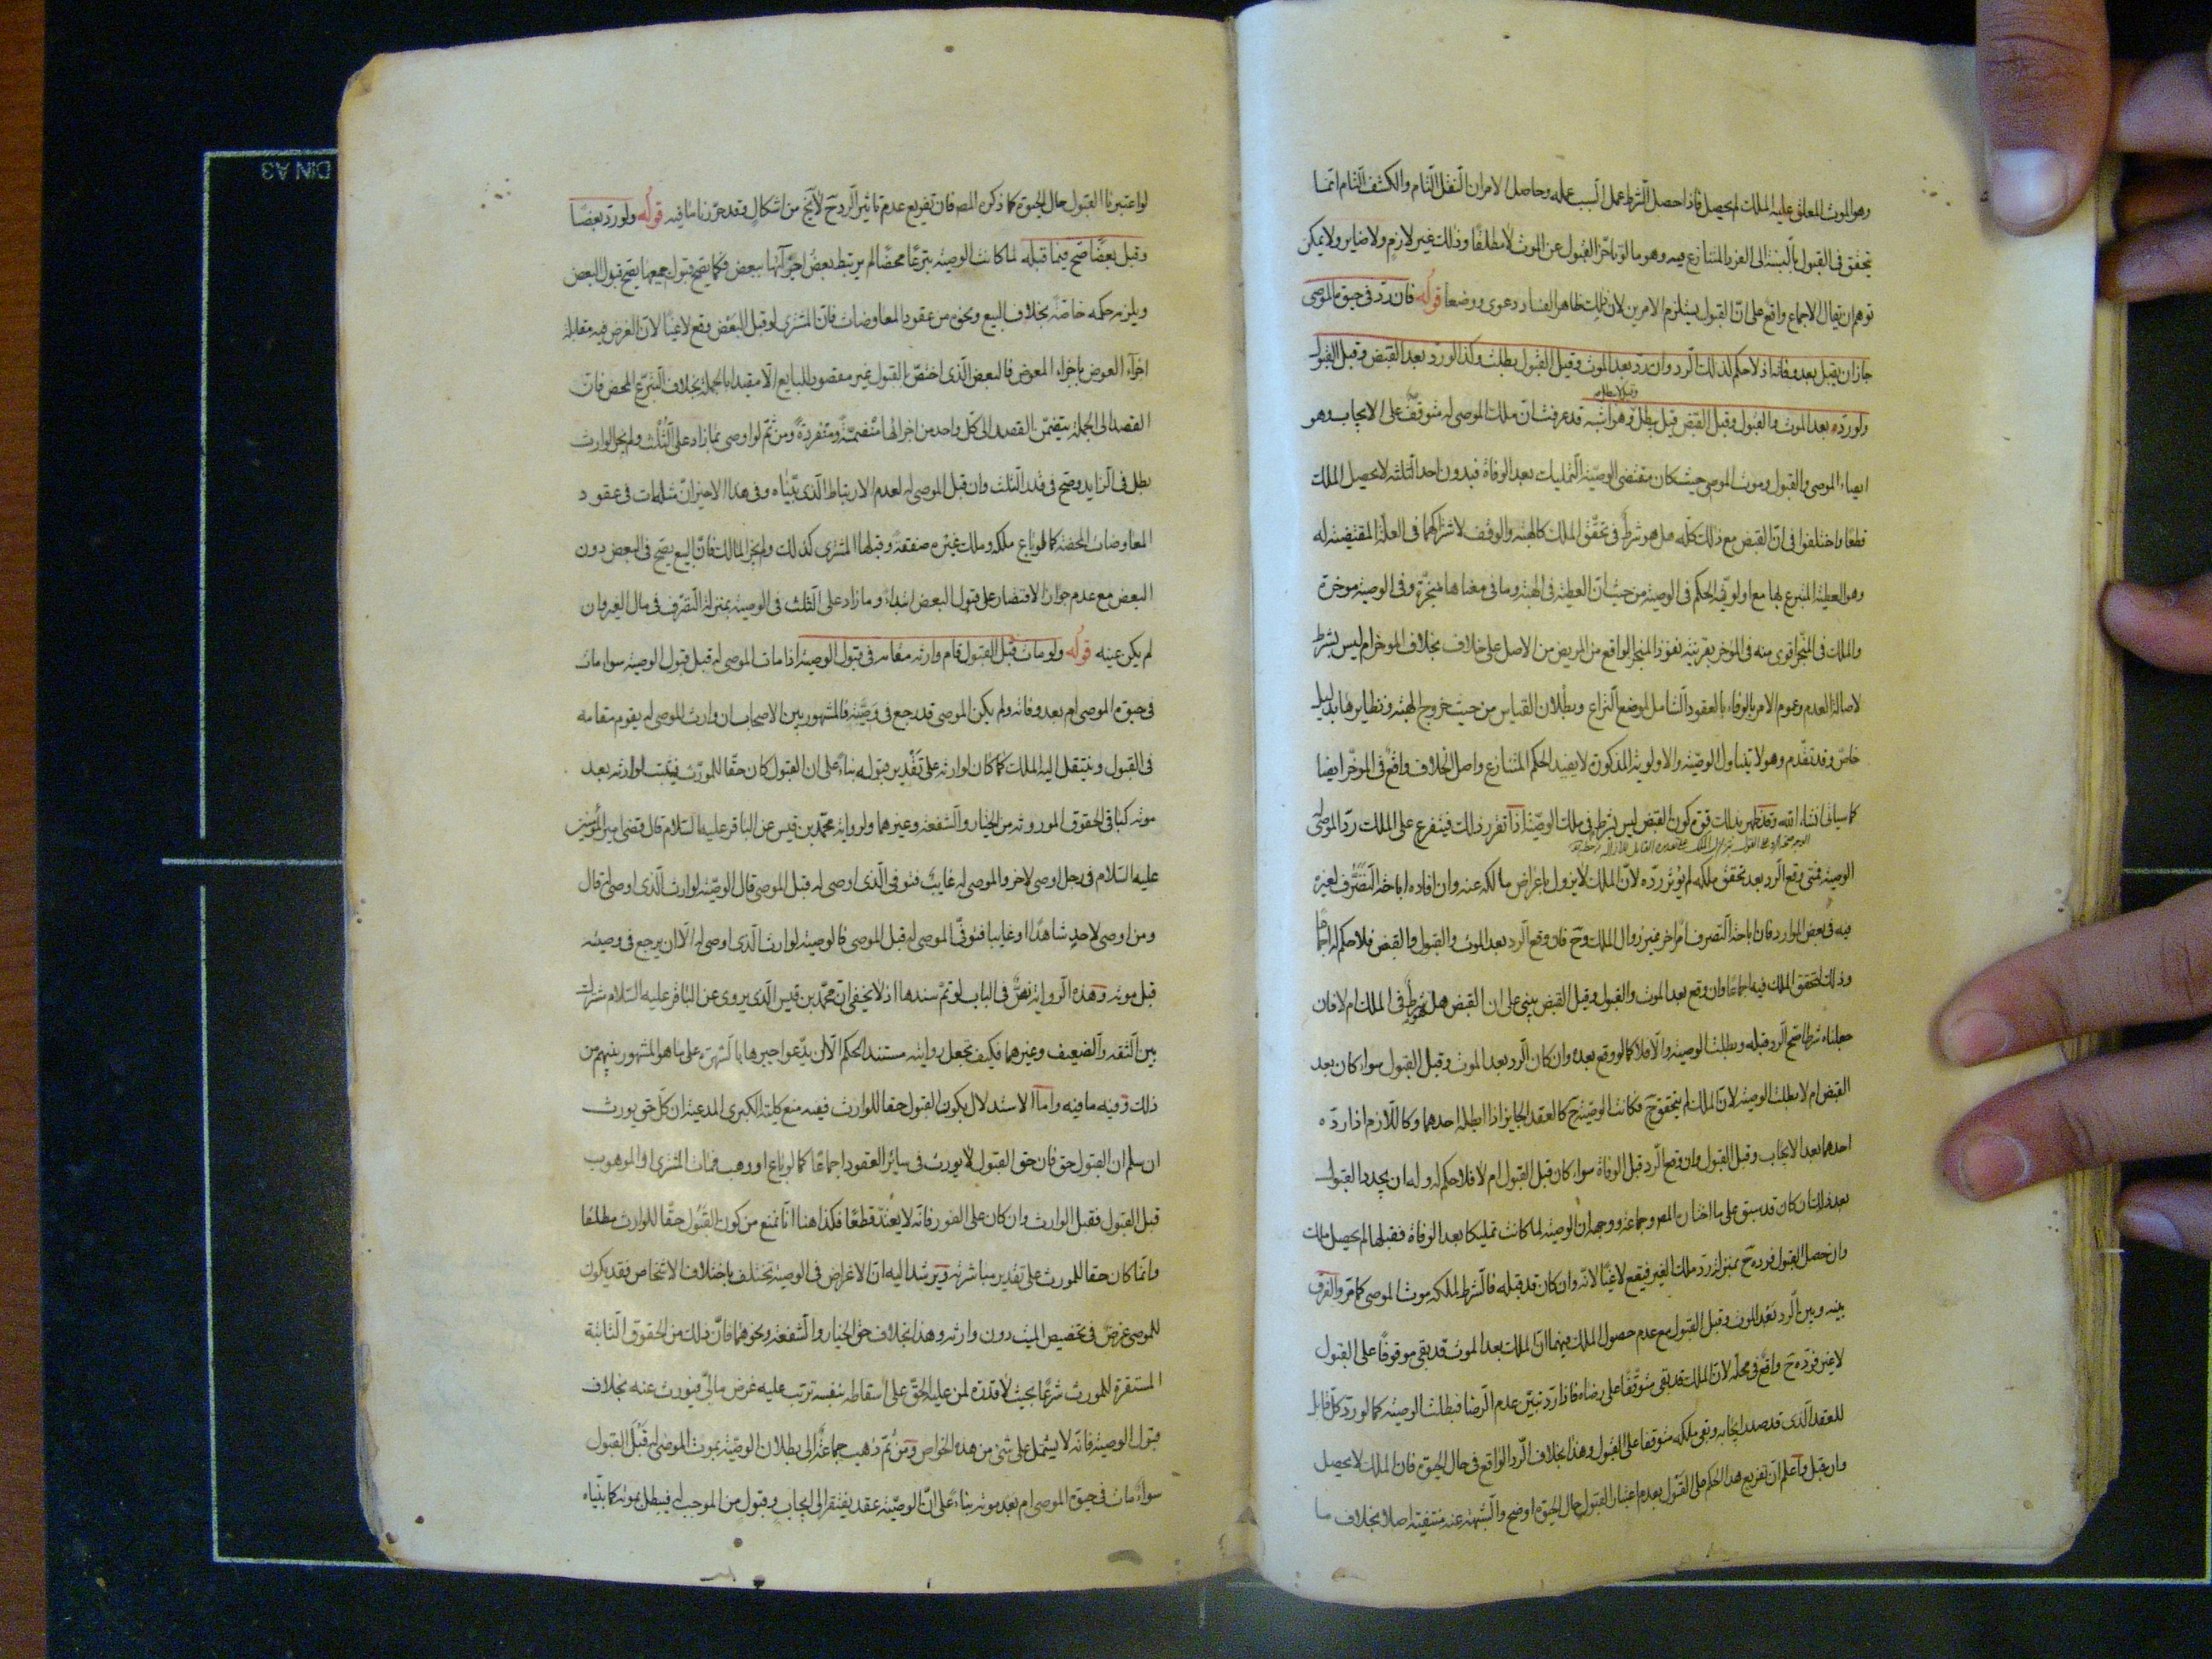 وهو الموت المعلق عليه الملك لم يحصل فاذا حصل الشرط عمل السبب عمله وحاصل الامر ان النقل التام والكشف التام انما
يتحقق في القبول بالنسبة الى الفرد المتنازع فيه وهو ما لو تاخر القبول عن الموت لا مطلقا وذلك غير لازم ولا ضاير ولا يمكن
توهم ان يقال الاجماع واقع على ان القبول يستلزم الامرين لان ذلك ظاهر الفساد دعوى ووضعا قوله فان رد في حيوة الموصى
جاز ان يقبل بعد وفاته اذ لا حكم لذلك الرد وان رد بعد الموت وقبل القبول بطلت وكذا لو رد بعد القبض وقبل القبول
ولو رده بعد الموت والقبول وقبل القبض قيل يبطل وهو اشبه قد عرفت ان ملك الموصى له متوقف على الايجاب وهو
ايصاء الموصى والقبول وموت الموصى حيث كان مقتضى الوصية التمليك بعد الوفاة فبدون احد الثلثة لا يحصل الملك
قطعا واختلفوا في ان القبض مع ذلك كله هل هو شرط في تحقق الملك كالهبة والوقف لاشتراكهما في العلة المقتضية له
وهو العطية المتبرع بها مع اولوية الحكم في الوصية من حيث ان العطية في الهبة وما في معناها منجزة وفي الوصية موخرة
والملك في المنجز اقوى منه في المؤخر بقرينة نفوذ المنجز الواقع من المريض من الاصل على خلاف بخلاف الموخر ام ليس بشرط
لاصالة العدم وعموم الامر بالوفاء بالعقود الشامل لموضع النزاع وبطلان القياس من حيث خروج الهبة ونظايرها بدليل
خاص وقد تقدم وهو لا يتناول الوصية والاولوية المذكورة لا يفيد الحكم المتنازع واصل الخلاف واقع في الموخر ايضا
كما سياتي انشاء الله وقد ظهر بذلك قوة كون القبض ليس بشرط في ملك الوصية اذا تقرر ذلك فيتفرع على الملك رد الموصى
الوصية فمتى وقع الرد بعد تحقق ملكه لم يؤثر رده لان الملك لا يزول باعراض مالكه عنه وان افاده اباحة التصرف لغيره
فيه في بعض الموارد فان اباحة التصرف امر اخر غير زوال الملك وح فان وقع الرد بعد الموت والقبول والقبض فلا حكم له اجماعا
وذلك لتحقق الملك فيه اجماعا وان وقع بعد الموت والقبول وقبل القبض بنى على ان القبض هل هو شرط في الملك ام لا فان
جعلناه شرطا صح الرد قبله وبطلت الوصية والا فلا كما لو وقع بعده وان كان الرد بعد الموت وقبل القبول سواء كان بعد
القبض ام لا بطلت الوصية لان الملك لم يتحقق ح فكانت الوصية ح كالعقد الجايز اذا ابطله احدهما وكاللازم اذا رده
احدهما بعد الايجاب وقبل القبول وان وقع الرد قبل الوفاة سواء كان قبل القبول ام لا فلا حكم له وله ان يجدد القبول
بعد ذلك ان كان قد سبق على ما اختاره المصـ وجماعة ووجهه ان الوصية لما كانت تمليكا بعد الوفاة فقبلها لم يحصل ملك
وان حصل القبول فرده ح بمنزلة رد ملك الغير فيقع لاغيا لانه وان كان قد قبله فالشرط لملكه موت الموصى كما مر والفرق
بينه وبين الرد بعد الموت وقبل القبول مع عدم حصول الملك فيهما ان الملك بعد الموت قد بقى موقوفا على القبول
لا غير فرده ح واقع في محله لان الملك قد بقى متوقفا على رضاه فاذا رد تبين عدم الرضا فبطلت الوصية كما لو رد كل قابل
للعقد الذى قد صدر ايجابه وبقى ملكه متوقفا على القبول وهذا بخلاف الرد الواقع في حال الحيوة فان الملك لا يحصل
وان قبل واعلم ان تفريع هذا الحكم على القول بعدم اعتبار القبول حال الحيوة اوضح والشبهة عنه منتفية اصلا بخلاف ما
لو اعتبرنا القبول حال الحيوة كما ذكره المصـ فان تفريع عدم تاثير الرد ح لا يخ من اشكال وقد حررنا ما فيه قوله ولو رد بعضا
وقبل بعضا صح فيما قبله لما كانت الوصية تبرعا محضا لم يرتبط بعض اجزائها ببعض فكما يصح قبول جميعها يصح قبول البعض
ويلزمه حكمه خاصة بخلاف البيع ونحوه من عقود المعاوضات فان المشترى لو قبل البعض وقع لاغيا لان الغرض فيه مقابلة
اجزاء العوض باجزاء المعوض فالبعض الذى اختص بالقبول غير مقصود للبايع الا مقيدا بالجملة بخلاف التبرع المحض فان
القصد الى الجملة يتضمن القصد الى كل واحد من اجزائها منضمة ومنفردة ومن ثم لو اوصى بما زاد على الثلث ولم يجز الوارث
بطل في الزايد وصح في قدر الثلث وان قبل الموصى له لعدم الارتباط الذى بيناه وفي هذا الاخير ان مثله ات في عقود
المعاوضات المحضة كما لو باع ملكه وملك غيره صفقة وقبلها المشترى كذلك ولم يجز المالك فان البيع يصح في البعض دون
البعض مع عدم جواز الاقتصار على قبول البعض ابتداء وما زاد على الثلث في الوصية بمنزلة التصرف في مال الغير وان
لم يكن عينه قوله ولو مات قبل القبول قام وارثه مقامه في قبول الوصية اذا مات الموصى له قبل قبول الوصية سواء مات
في حيوة الموصى ام بعد وفاته ولم يكن الموصى قد رجع في وصيته فالمشهور بين الاصحاب ان وارث الموصى له يقوم مقامه
في القبول وينتقل اليه الملك كما كان لوارثه على تقدير قبوله بناء على ان القبول كان حقا للمورث فيثبت لوارثه بعد
موته كباقى الحقوق الموروثة من الخيار والشفعة وغيرهما ولرواية محمد بن قيس عن الباقر عليه السلام قال قضى امير المؤمنين
عليه السلام في رجل اوصى لاخر والموصى له غايب فتوفى الذى اوصى له قبل الموصى قال الوصية لوارث الذى اوصى له قال
ومن اوصى لاحد شاهدا او غايبا فتوفى الموصى له قبل الموصى فالوصية لوارث الذى اوصى له الا ان يرجع في وصيته
قبل موته وهذه الرواية نص في الباب لو تم سندها اذ لا يخفى ان محمد بن قيس الذى يروى عن الباقر عليه السلام مشترك
بين الثقة والضعيف وغيرهما فكيف تجعل روايته مستند الحكم الا ان يدعوا جبرها بالشهرة على ما هو المشهور بينهم من
ذلك وفيه ما فيه واما الاستدلال بكون القبول حقا للوارث ففيه منع كلية الكبرى المدعية ان كل حق يورث
ان سلم ان القبول حق فان حق القبول لا يورث في سائر العقود اجماعا كما لو باع او وهب فمات المشترى والموهوب
قبل القبول فقبل الوارث وان كان على الفور فانه لا يعتد قطعا فكذا هنا انا نمنع من كون القبول حقا للوارث مطلقا
وانما كان حقا للمورث على تقدير مباشرته ويرشد اليه ان الاغراض في الوصية تختلف باختلاف الاشخاص فقد يكون
للموصى غرض في تخصيص الميت دون وارثه وهذا بخلاف حق الخيار والشفعة ونحوهما فان ذلك من الحقوق الثابتة
المستقرة للمورث شرعا بحيث لا قدرة لمن عليه الحق على اسقاطه بنفسه ترتب عليه غرض مالى فيورث عنه بخلاف
قبول الوصية فانه لا يشتمل على شئ من هذه الخواص ومن ثم ذهب جماعة الى بطلان الوصية بموت الموصى له قبل القبول
سواء مات في حيوة الموصى ام بعد موته بناء على ان الوصية عقد يفتقر الى ايجاب وقبول من الموجب له فيبطل بموته كما بيناه
DIN A3